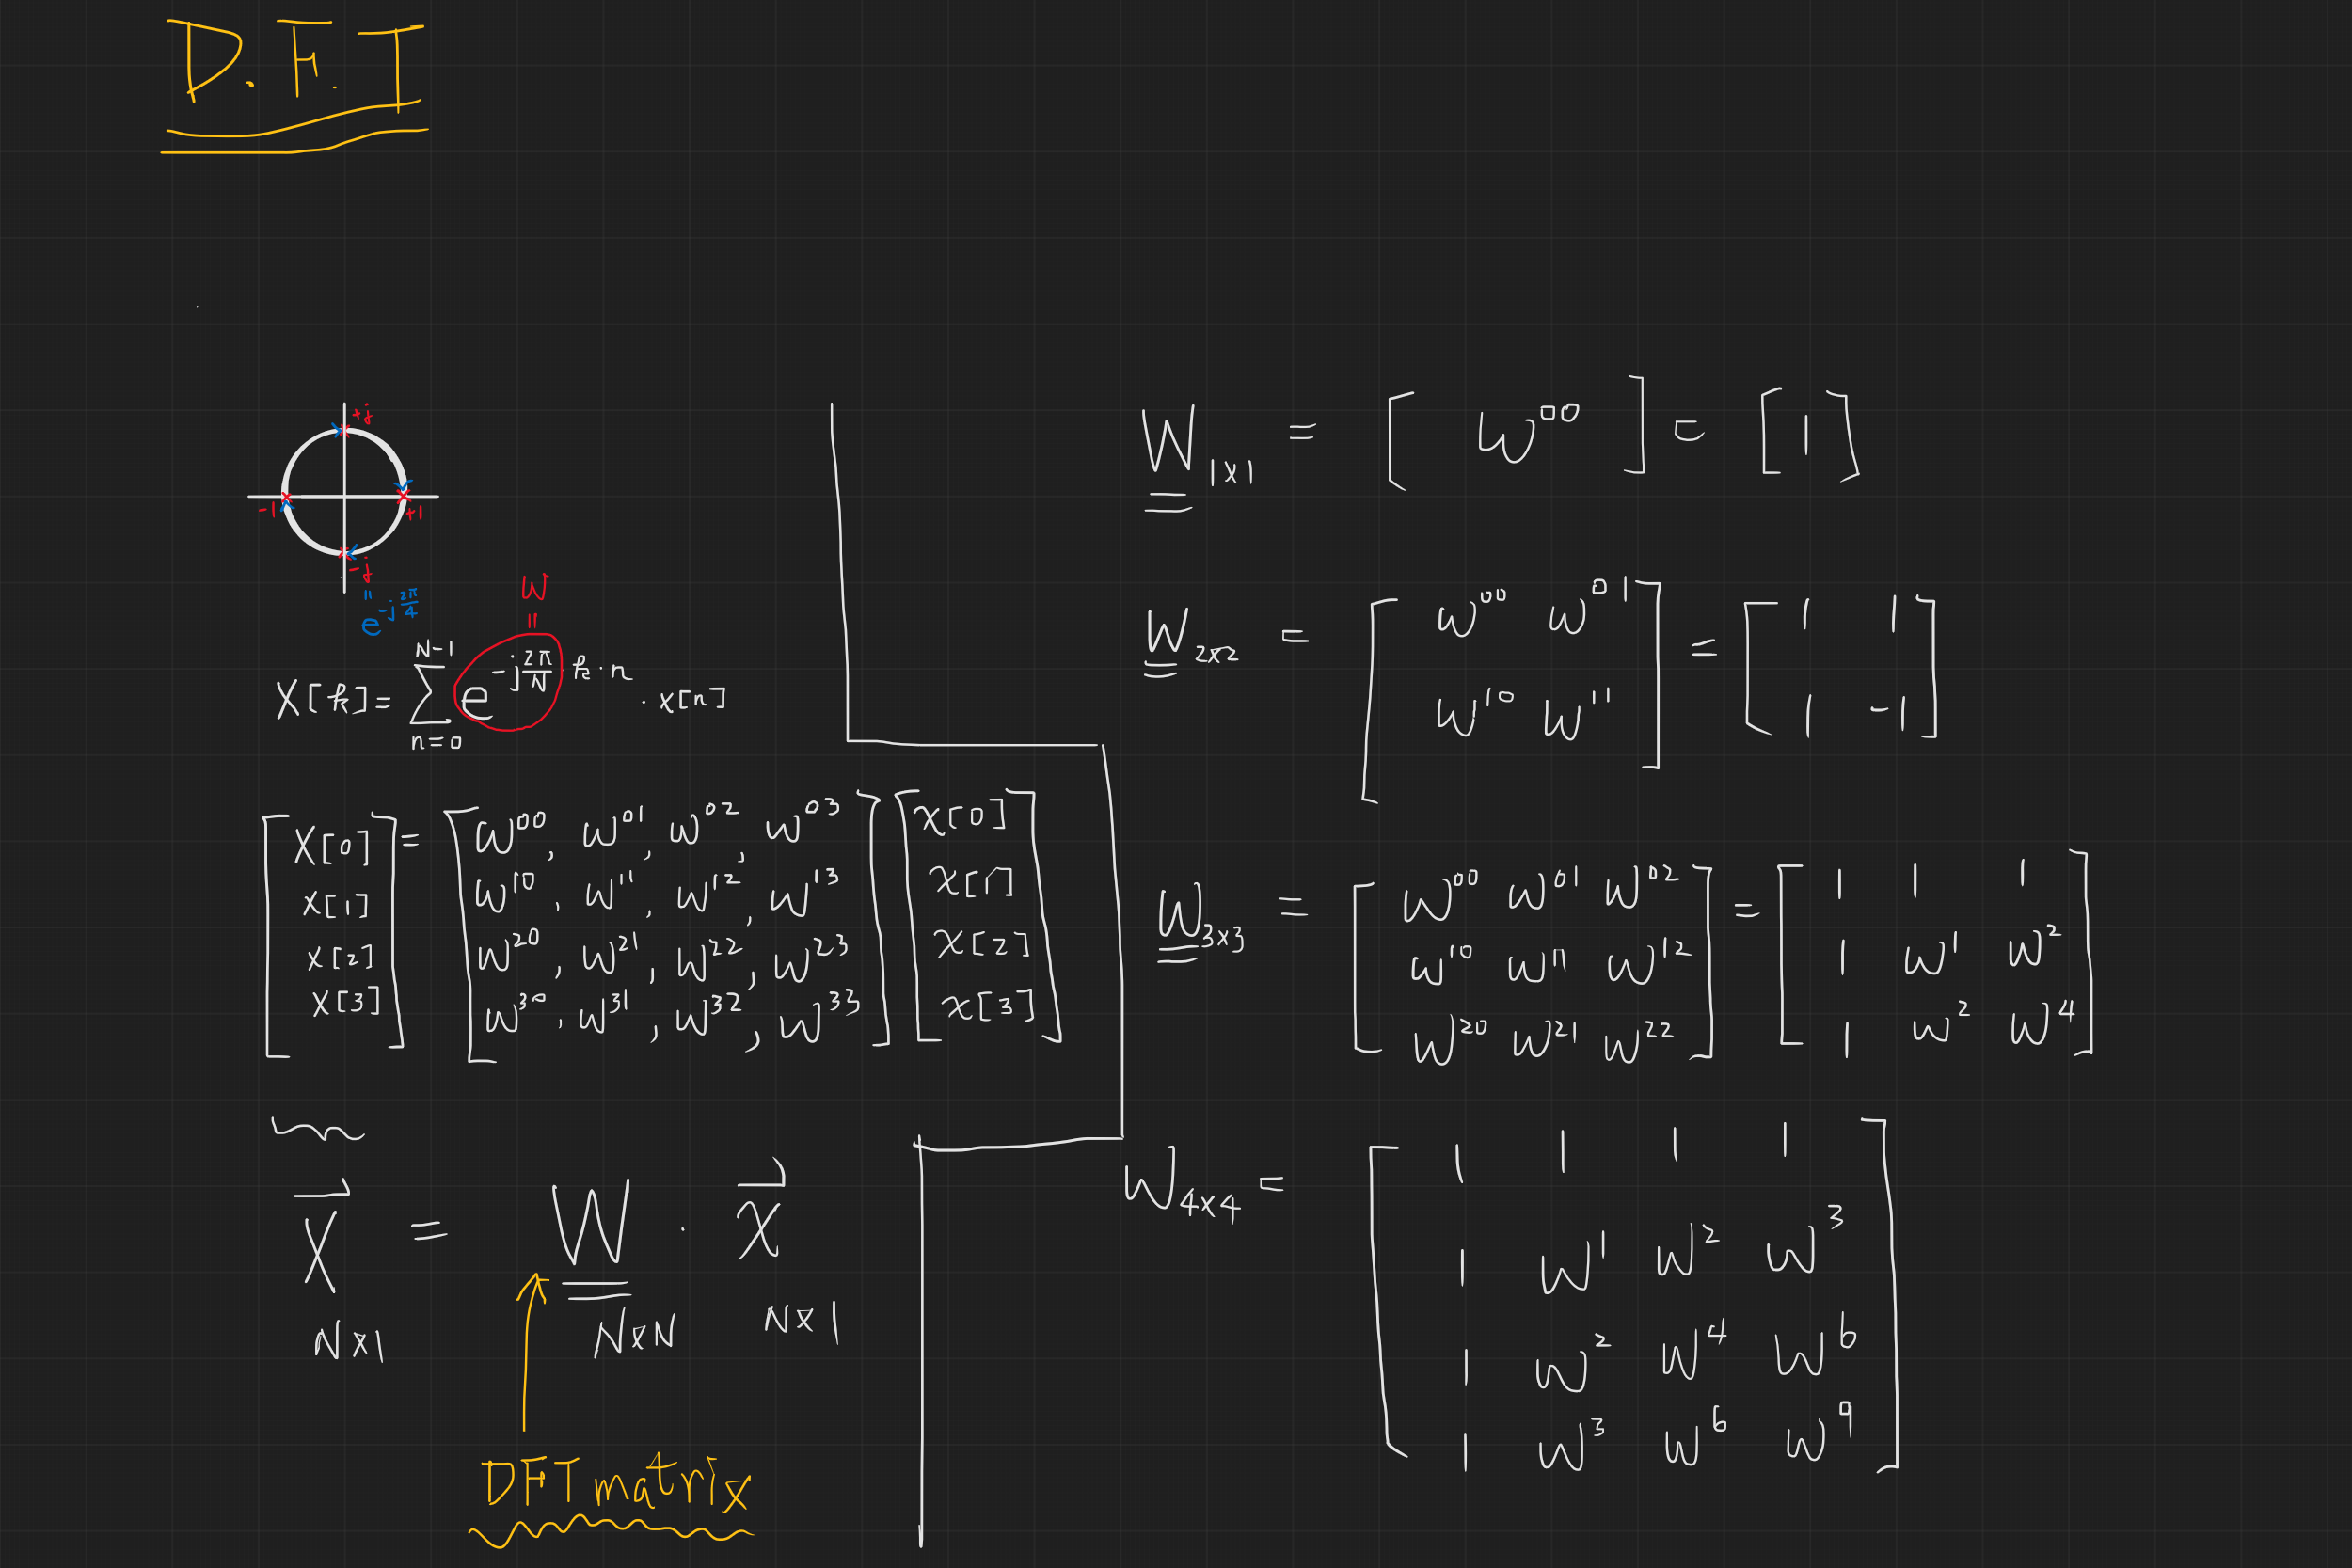 D.F.T
+j
-1
+1
-j
"
e^{-j\frac{2π}{4}}
W
=
X[k] = \sum_{n=0}^{N-1} e^{-j\frac{2π}{N} k·n} · x[n]
[X[0] X[1] X[2] X[3]] = [w^{00}, w^{01}, w^{02}, w^{03}
w^{10}, w^{11}, w^{12}, w^{13}
w^{20}, w^{21}, w^{22}, w^{23}
w^{30}, w^{31}, w^{32}, w^{33}] [x[0] x[1] x[2] x[3]]
X = W · x
N×1 N×N N×1
DFT matrix
W_{1×1} = [w^{00}] = [1]
W_{2×2} = [w^{00} w^{01}
w^{10} w^{11}] = [1 1
1 -1]
W_{3×3} = [w^{00} w^{01} w^{02}
w^{10} w^{11} w^{12}
w^{20} w^{21} w^{22}] = [1 1 1
1 w^1 w^2
1 w^2 w^4]
W_{4×4} = [1 1 1 1
1 w^1 w^2 w^3
1 w^2 w^4 w^6
1 w^3 w^6 w^9]